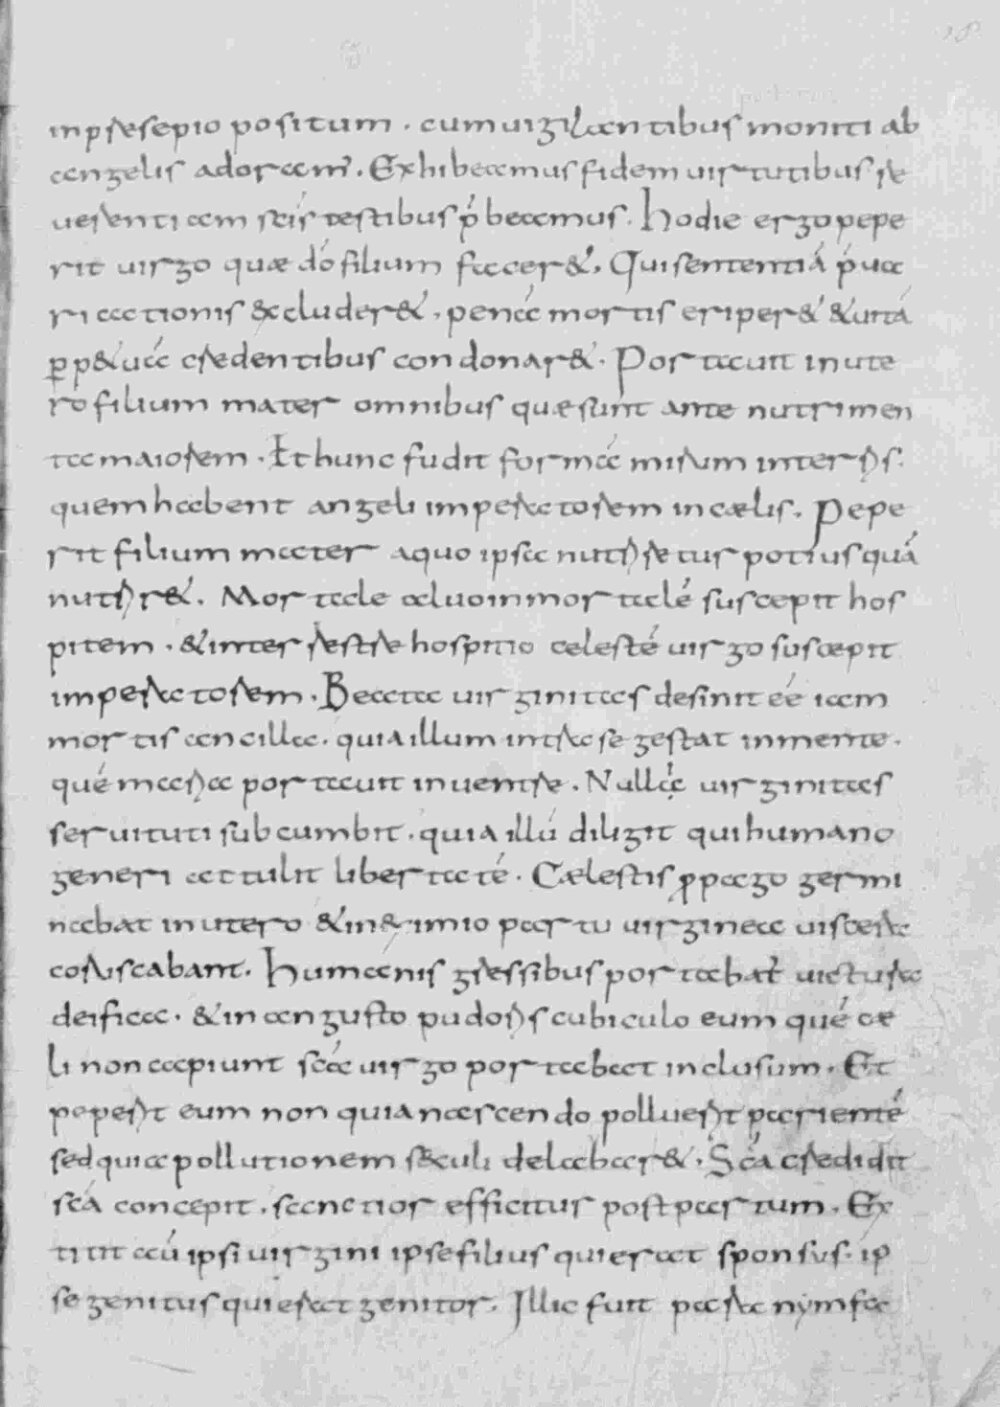 inpresepio positum · cumuigilantibus moniti ab
angelis adoram̅ · Exhibeamus fidem uirtutibus re
uerentiam scis testibus p̅beamus · Hodie ergo pepe
rit uirgo quæ dō filium facer& · Qui sententiā p̅ua
ricationis excluder& · pena̅ mortis eriper& &uitā
ꝑp&uā credentibus condonar& · Portauit inute
ro filium mater omnibus quæ sunt ante nutrimen
ta maiorem · Et hunc fudit forma̅ mirum inter h̅s ·
quem habent angeli imperatorem in cælis · Pepe
rit filium mater aquo ipsa nutriretur potius quā
nutrir& · Mortale aluo inmortalē suscepit hos
pitem · &inter restre hospitio celestē uirgo suscepit
imperatorem · Beata uirginitas desinit ēē iam
mortis ancilla · quia illum intra se gestat inmente ·
quē maria portauit inuentre · Nulla uirginitas
seruituti subcumbit · quia illū diligit qui humano
generi attulit libertatē · Cælestis ꝓpago germi
nabat inutero &in&imio partu uirginea uiscera
coruscabant · Humanis gressibus portabat̅ uictura
deifica · &in angusto pudoris cubiculo eum quē cæ
li non capiunt sc̅a uirgo portabat inclusum · Et
peperit eum non quia nascendo pollueret parientē
sed quia pollutionem sæculi delabar& · Sc̅a credidit
sc̅a concepit · sanctior efficitur post partum · Ex
titit aū ipsi uirgini ipse filius qui erat sponsus · ip
se genitus qui erat genitor · Illic fuit para nymfa